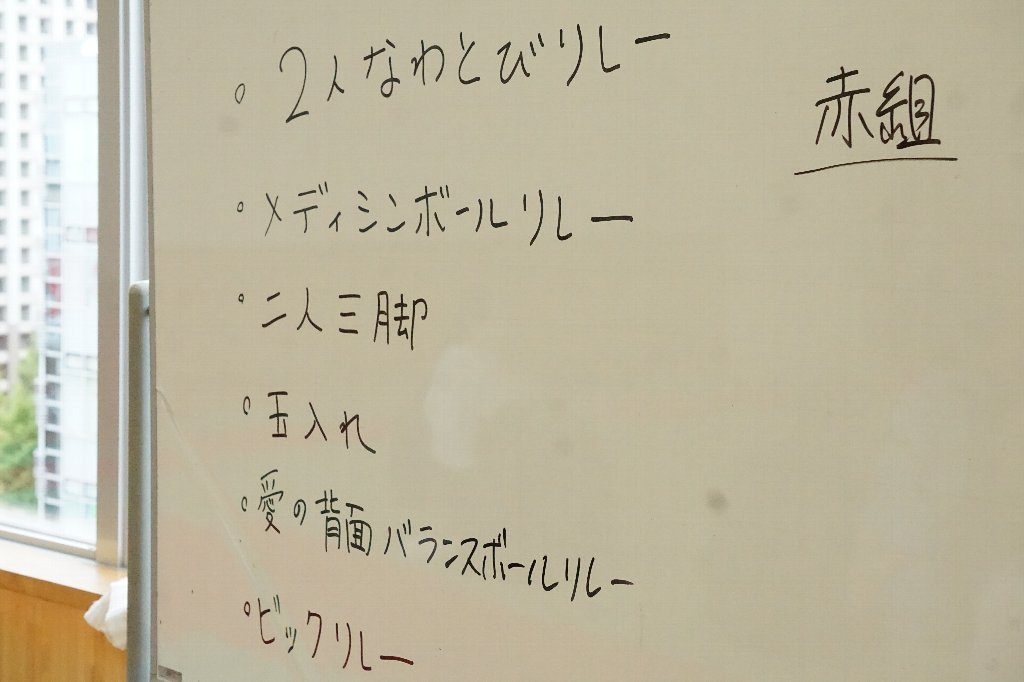 。2人なわとびリレー
赤組
。メディシンボールリレー
。二人三脚
。玉入れ
。愛の背面バランスボールリレー
。ビックリレー